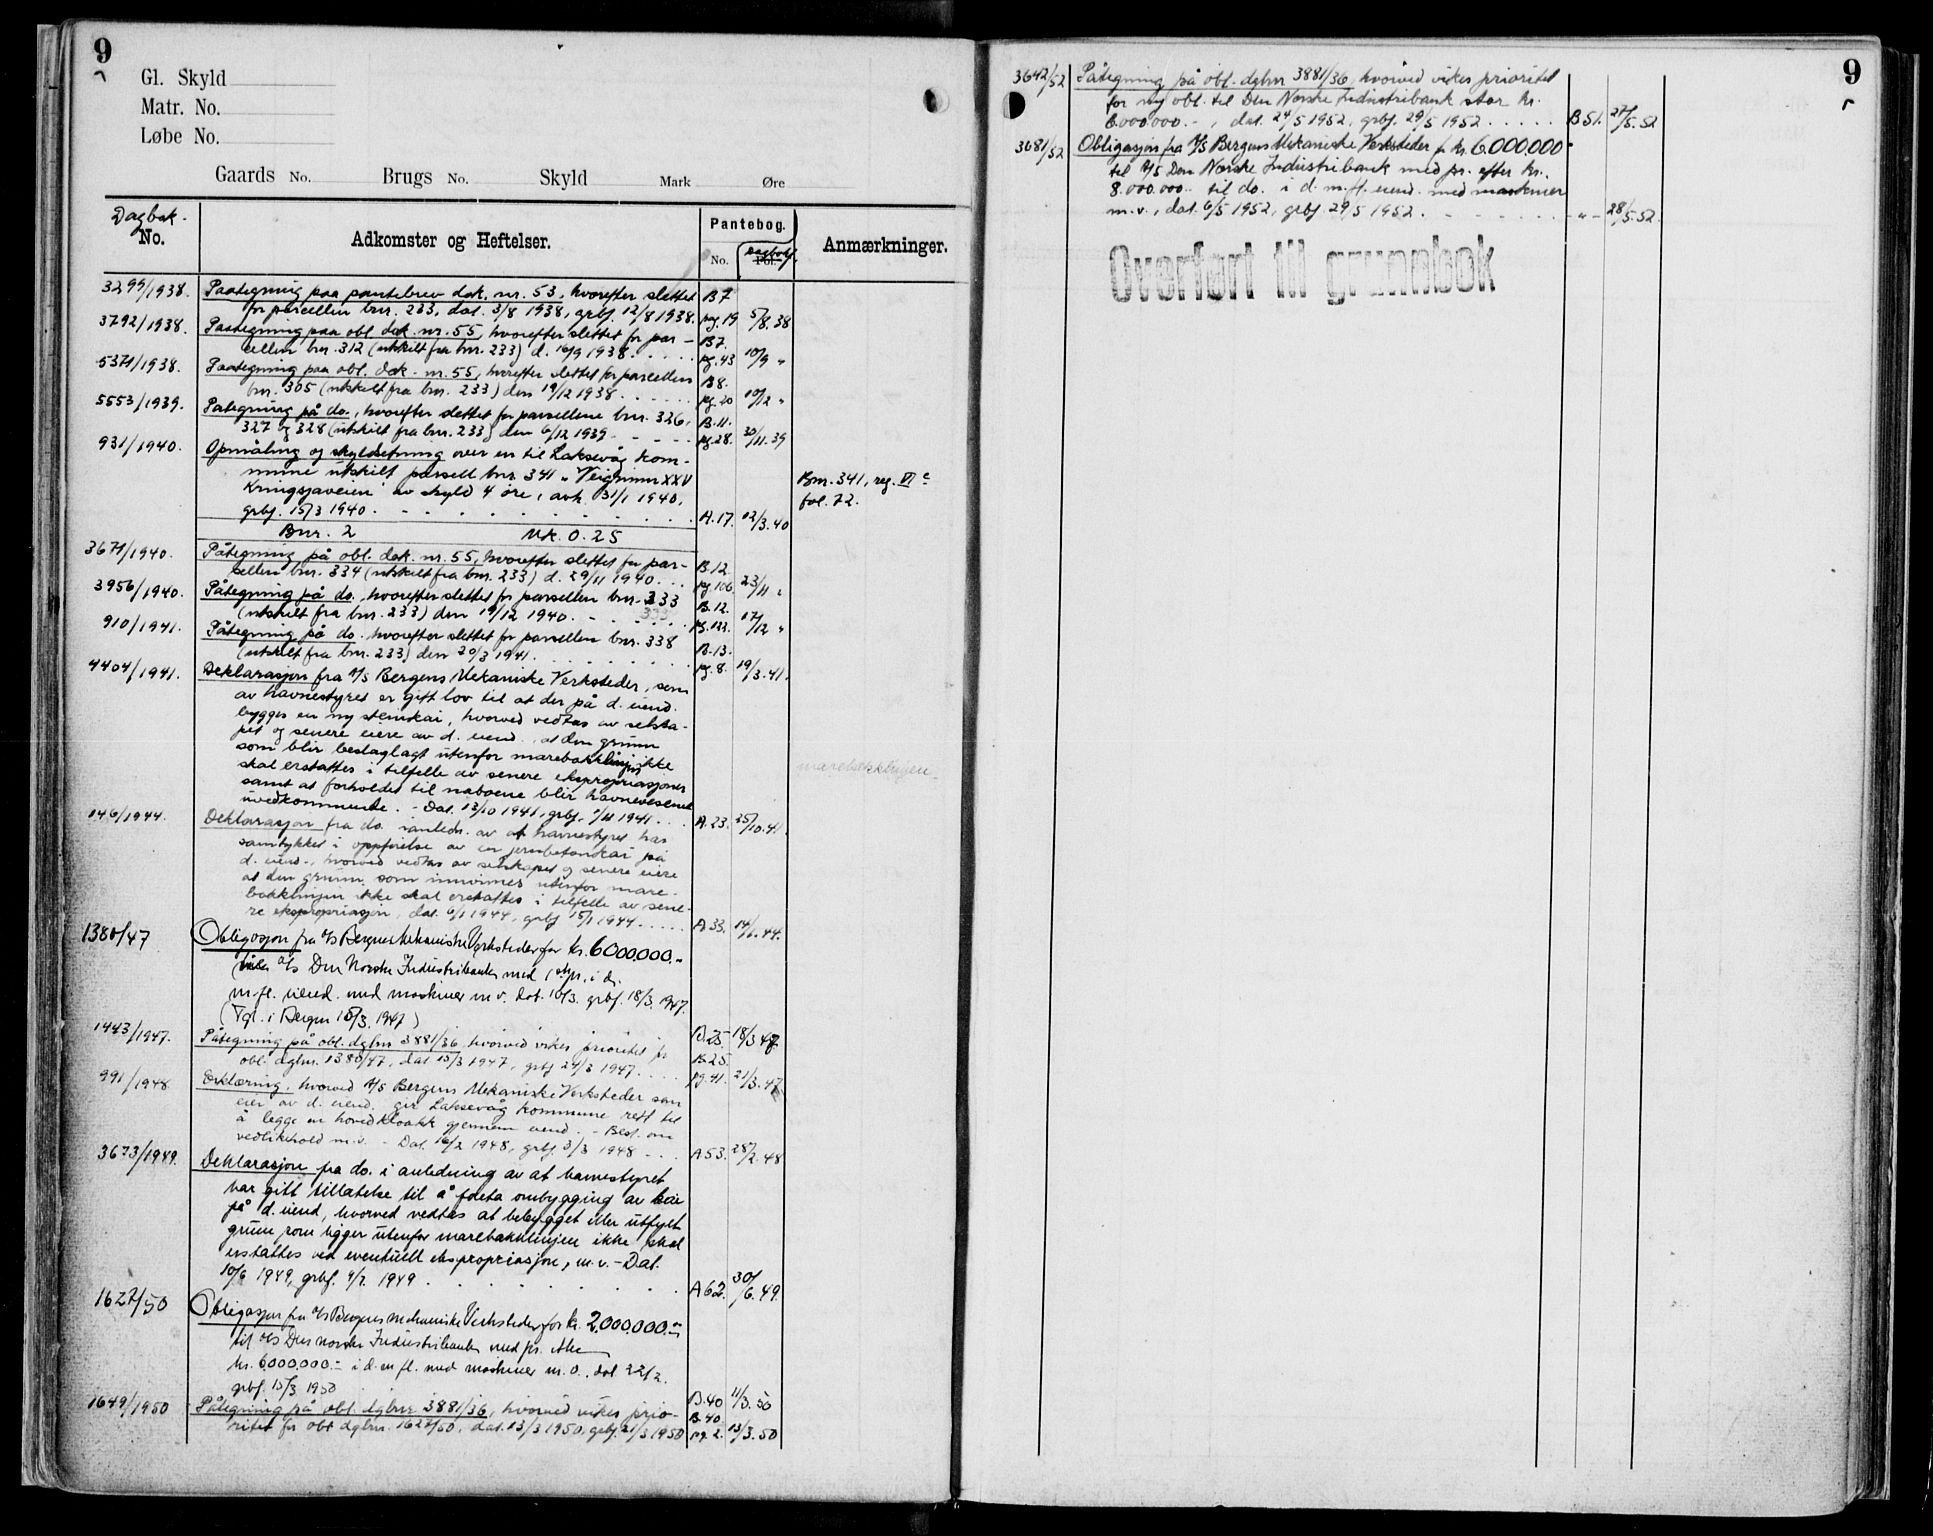 9
Gl. Skyld
Matr. No.
Løbe No.
Gaards No. Brugs No. Skyld Mark Øre
Dagbok. No. Adkomster og Heftelser. Pantebog. No. Fol. dagbokf. Anmærkninger.
3299/1938. Paategning paa pantebrev dok. nr. 53, hvorefter slettet B7
for parcellen bnr. 233, dat. 3/8 1938, grbf. 12/8 1938. pag. 19 5/8.38
3792/1938. Paategning paa obl. dok. nr. 55, hvorefter slettet for par- B7.
cellen bnr. 312 (utskilt fra bnr. 233) d. 16/9 1938. pg. 43 10/9 "
5371/1938. Paategning paa obl. dok. nr. 55, hvorefter slettet for parcellen B8.
bnr. 305 (utskilt fra bnr. 233) den 19/12 1938. pg. 20 10/12 "
5553/1939. Påtegning på do., hvorefter slettet for parsellene bnr. 326, B.11.
327 og 328 (utskilt fra bnr. 233) den 6/12 1939. pg. 28. 30/11.39
931/1940. Opmåling og skyldsetning over en til Laksevåg kom-
mune utskilt parsell bnr. 341 "Veigrunn XXV Bnr. 341, reg. VI c
Kringsjaveien" av skyld 4 øre, avh. 31/1 1940, fol. 72.
grbf. 15/3 1940. A.17. 12/3.40
Bnr. 2 Mk. 0.25
3671/1940. Påtegning på obl. dok. nr. 55, hvorefter slettet for par- B.12.
sellen bnr. 334 (utskilt fra bnr. 233) d. 29/11 1940. pg. 106. 23/11 "
3956/1940. Påtegning på do., hvorefter slettet for parsellen bnr. 333 B.12.
(utskilt fra bnr. 233) den 19/12 1940. 333 pg. 122. 17/12 "
910/1941. Påtegning på do. hvorefter slettet for parsellen bnr. 338 B.13.
(utskilt fra bnr. 233) den 20/3 1941. pg. 8. 19/3.41.
4404/1941. Deklarasjon fra A/S Bergens Mekaniske Verksteder, som
av havnestyret er gitt lov til at der på d. eiend.
bygges en ny stenkai, hvorved vedtas av selska-
pet og senere eiere av d. eiend. at den grunn
som blir beslaglagt utenfor marebakklinjen ikke
skal erstattes i tilfelle av senere ekspropriasjoner marebakklinjen
samt at forholdet til naboene blir havnevesenet
uvedkommende. - Dat. 13/10 1941, grbf. 1/11 1941. A.23. 25/10.41.
146/1944. Deklarasjon fra do. i anledn. av at havnestyret har
samtykket i oppførelse av en jernbetonkai på
d. eiend., hvorved vedtas av selskapet og senere eiere
at den grunn som innvinnes utenfor mare-
bakklinjen ikke skal erstattes i tilfelle av sene-
re ekspropriasjon, dat. 6/1 1944, grbf. 15/1 1944. A.33. 14/1.44.
1380/47 Obligasjon fra A/S Bergens Mekaniske Verksteder for kr. 6000.000.-
til A/S Den Norske Industribank med 1ste pr. i d.
m.fl. eiend. med maskiner m.v. dat. 10/3. grbf. 18/3. 1947.
(Tgl. i Bergen 15/3. 1947) B.25. 18/3 47
1443/1947. Påtegning på obl. dgbnr 3881/36, hvorved vikes prioritet for B.25.
obl. dgbnr. 1380/47, dat. 15/3 1947, grbf. 24/3 1947. pg. 41. 21/3.47
991/1948 Erklæring, hvorved A/S Bergens Mekaniske Verksteder som
eier av d. eiend. gir Laksevåg kommune rett til
å legge en hovedkloakk gjennem eiend. - Best. om
vedlikehold m.v. - Dat. 16/2 1948, grbf. 3/3 1948 A53. 28/2.48
3673/1949. Deklarasjon fra do. i anledning av at havnestyret
har gitt tillatelse til å foreta ombygging av kai
på d. eiend, hvorved vedtas at bebygget eller utfylt
grunn som ligger utenfor marebakklinjen ikke skal
erstattes ved eventuell ekspropriasjon, m.v. - Dat.
10/6 1949, grbf. 4/7. 1949 A62. 30/6.49.
1627/50 Obligasjon fra A/S Bergens mekaniske Verksteder for kr. 2.000.000.-
til A/S Den norske Industribank med pr. etter
kr. 6000.000.- i d. m fl. med maskiner m.v., dat. 22/2.
grbf. 15/3 1950 B.40 11/3.50
1649/1950 Påtegning på obl. dgbnr 3881/36, hvorved vikes prio- B.40.
ritet for obl dgbnr. 1627/50, dat. 13/3 1950, grbf. 21/3 1950 pg. 2. 13/3.50
9
3642/52 Påtegning på obl. dgbnr 3881/36, hvorved vikes prioritet
for ny obl. til Den Norske Industribank stor kr.
6.000.000.-, dat. 24/5 1952, grbf. 29/5 1952. B 51. 27/5.52
3681/52 Obligasjon fra A/S Bergens Mekaniske Verksteder for kr. 6.000.000.-
til A/S Den Norske Industribank med pr. efter kr.
8.000.000.- til do. i d. m.fl. eiend. med maskiner
m.v., dat. 6/5 1952, grbf. 29/5 1952. - " - 28/5.52.
Overført til grunnbok